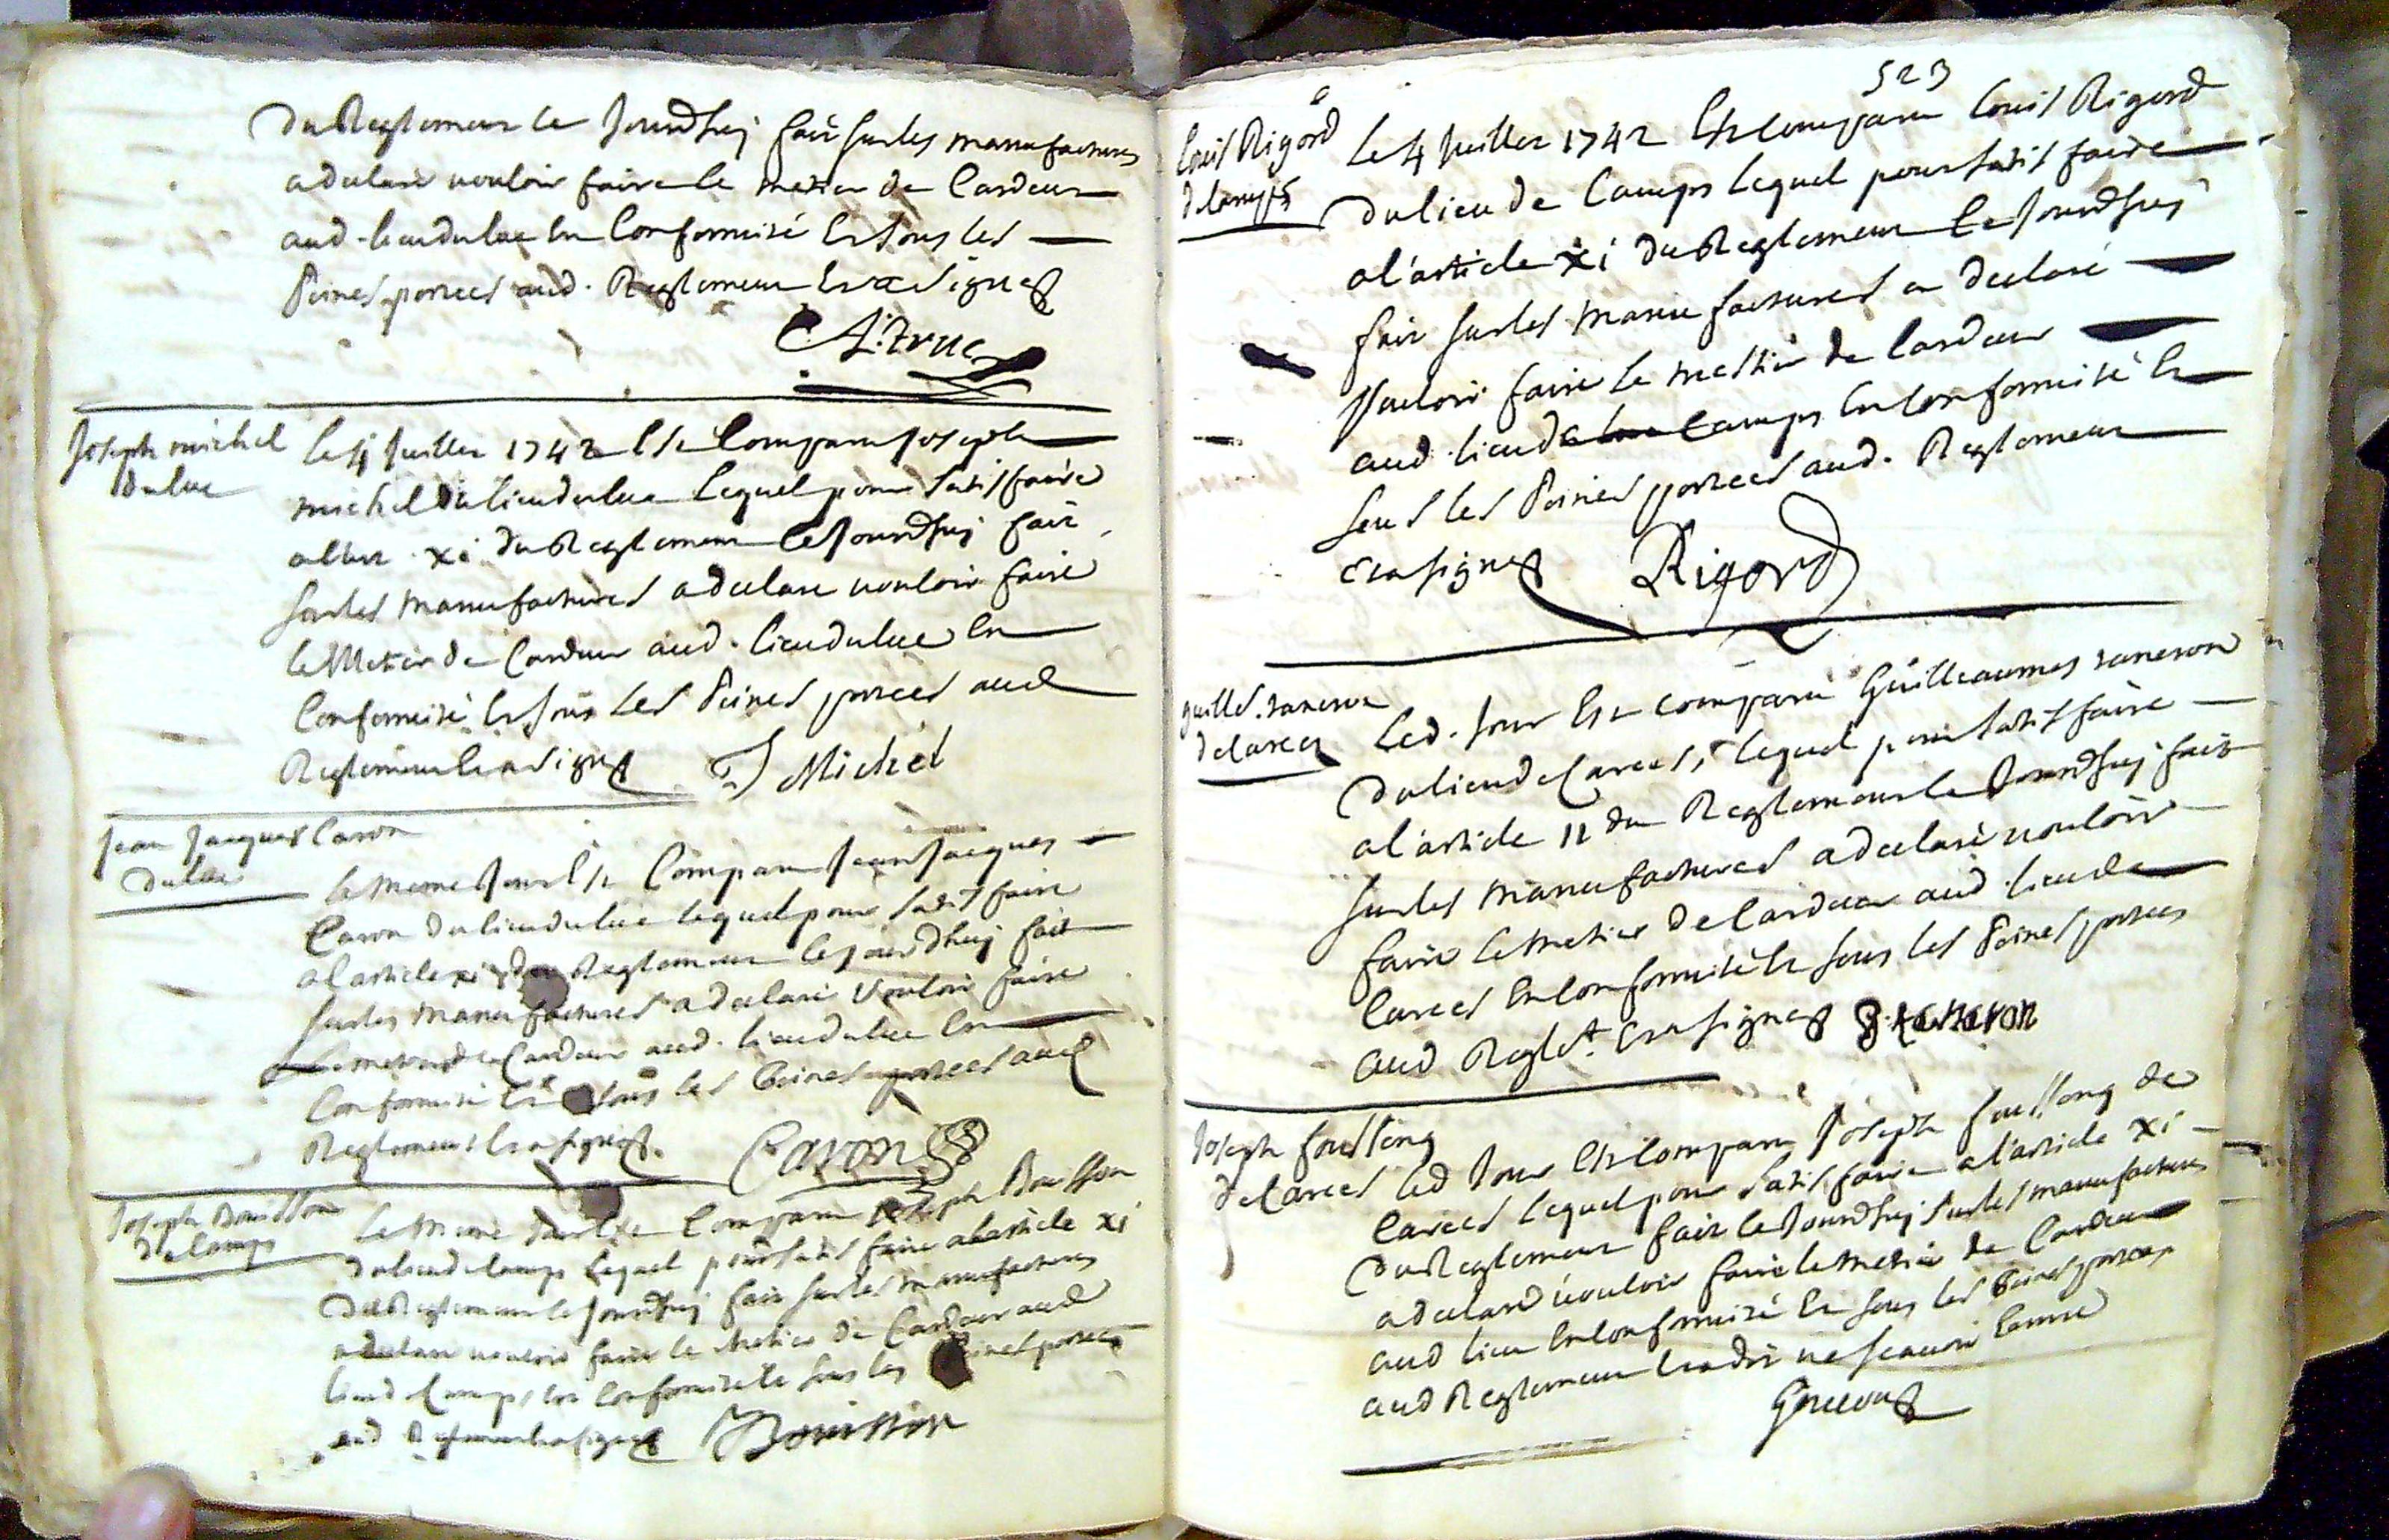 du Reglement ce Jourdhuj fait sur les manufactures
a declaré vouloir faire le metier de Cardeur
aud. lieu du luc en Conformité et sous les
Peines portées aud. Reglement et a signé
A: Truc
Joseph michel
du luc
le 4 Juillet 1742 Est Comparu Joseph
michel du lieu du luc lequel pour satisfaire
a l'art. xi du Reglement ce Jourdhuj fait
sur les manufactures a declaré vouloir faire
le Metier de Cardeur aud. lieu du luc en
Conformité et sous les Peines portées aud
Reglement et a signé J Michel
Jean Jacques Caron
du luc
le meme Jour Est Comparu Jean Jacques
Caron du lieu du luc lequel pour satisfaire
a l article xi du Reglement ce jourdhuj fait
sur les manufactures a declaré vouloir faire
le metier de Cardeur aud. lieu du luc en
Conformité et sous les Peines portées aud
Reglement et a signé. Caron
Joseph Bouisson
de Camps
le meme Jour Est Comparu Joseph Bouisson
du lieu de Camps lequel pour satisfaire a larticle xi
du Reglement ce Jourdhuj fait sur les manufactures
a declaré vouloir faire le metier de Cardeur aud
lieu de Camps en Conformité et sous les Peines portées
aud Reglement et a signé Bouisson
523
Louis Rigord
de Camps
Le 4 Juillet 1742 Est Comparu Louis Rigord
du lieu de Camps lequel pour satisfaire
a l'article xi du Reglement ce Jourdhuj
fait sur les manufactures a declaré
vouloir faire le mestier de Cardeur
aud. lieu de Camps en Conformité et
sous les Peines portées aud. Reglement
et a signé Rigord
guille. taneron
de Carces
Led. Jour Est comparu Guilleaumes taneron
du lieu de Carces, lequel pour satisfaire
a l'article 11 du Reglement ce Jourdhuj fait
sur les manufactures a declaré vouloir
faire le metier de Cardeur aud. lieu de
Carces en Conformité et sous les Peines portées
aud Reglet. et a signé g. taneron
Joseph foussenq
de Carces
Led Jour Est Comparu Joseph foussenq de
Carces lequel pour satisfaire a l'article xi
du Reglement fait ce Jourdhuj sur les manufactures
a declaré vouloir faire le metier de Cardeur
aud lieu en Conformité et sous les Peines portées
aud Reglement et a dit ne scavoir ecrire